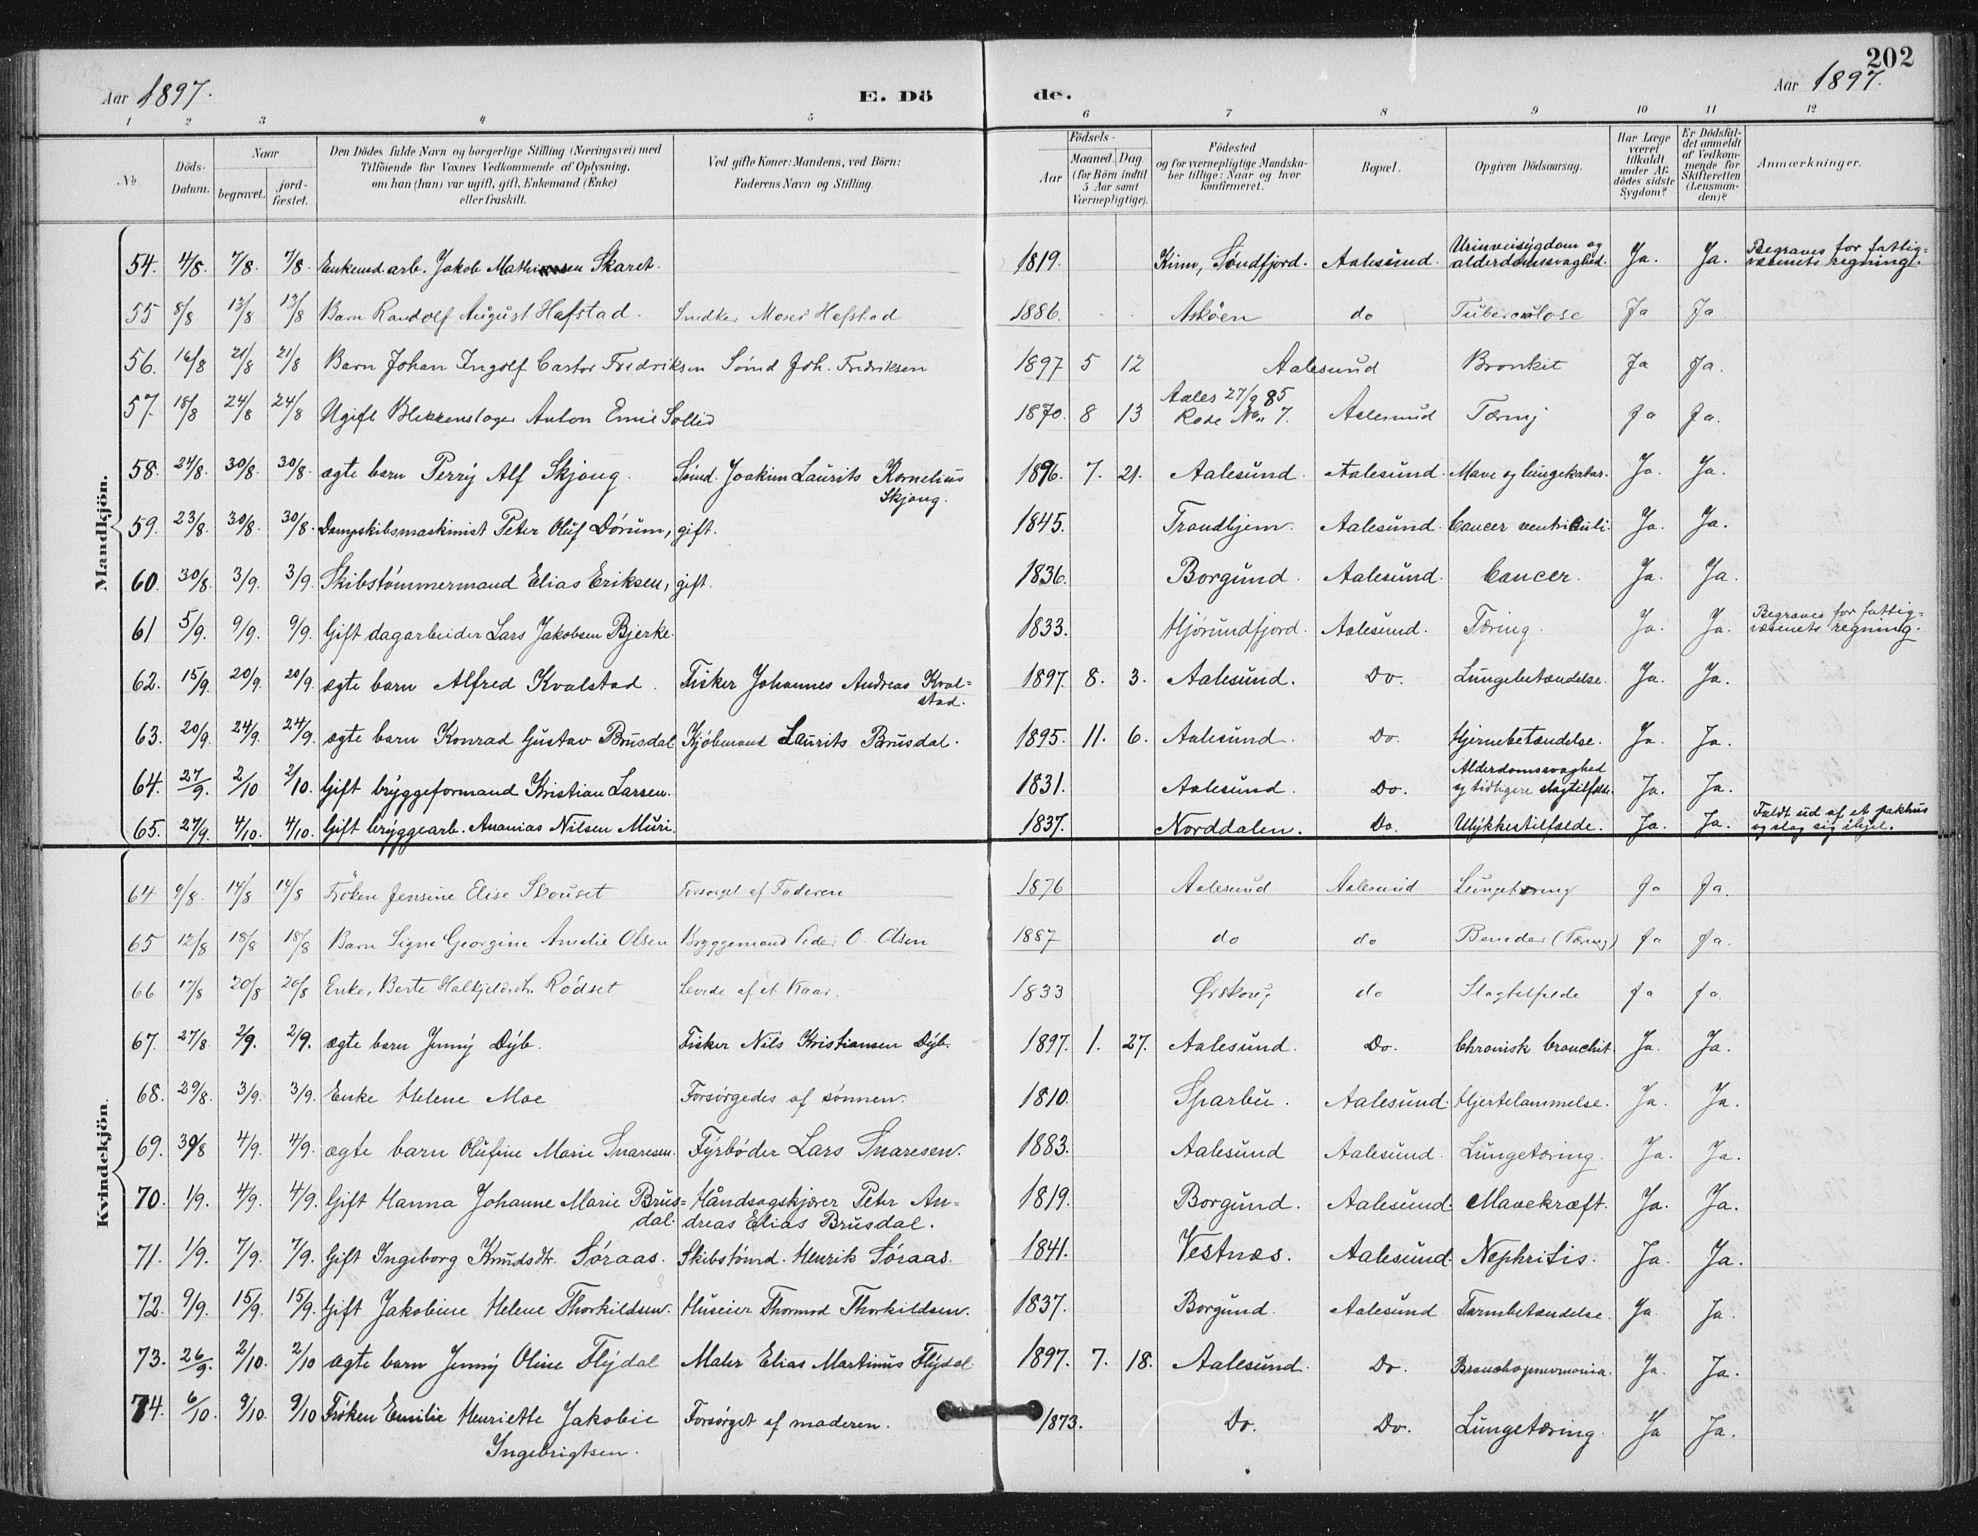 202
Aar 1897. E. Dö de. Aar 1897.
1 2 3 4 5 6 7 8 9 10 11 12
No Döds-Datum. Naar begravet. jord-fæstet. Den Dödes fulde Navn og borgerlige Stilling (Næringsvei) med Tilföiende for Voxnes Vedkommende af Oplysning, om han (hun) var ugift, gift, Enkemand (Enke) eller fraskilt. Ved gifte Koner: Mandens, ved Börn: Faderens Navn og Stilling. Födsels- Aar Maaned. Dag. (for Börn indtil 5 Aar samt Værnepligtige). Födested og for værnepligtige Mandskaber tillige: Naar og hvor konfirmeret. Bopæl. Opgiven Dödsaarsag. Har Læge været tilkaldt under Afdödes sidste Sygdom? Er Dödsfaldet anmeldt af Vedkommende for Skifteretten (Lensmanden)? Anmærkninger.
Mandkjön.
54. 4/8. 7/8. 7/8. Enkemd arb. Jakob Mathiassen Skaret. 1819. Kinn, Søndfjord. Aalesund. Urinveisygdom og alderdomssvaghed. Ja. Ja. Begraves for fattig=væsenets regning.
55 8/8 13/8 13/8 Barn Randolf August Hafstad. Snedker Moses Hafstad 1886. Askøen do Tuberculose Ja Ja
56. 16/8 21/8 21/8 Barn Johan Ingolf Castor Fredriksen Sømd Joh. Fredriksen 1897 5 12 Aalesund Bronkit Ja Ja.
57. 18/8 24/8 24/8 Ugift Blikkenslager Anton Emil Sollid 1870. 8 13 Aales 27/9 85 Rode No 7. Aalesund Tæring Ja Ja.
58. 24/8. 30/8. 30/8. ægte barn Perry Alf Skjong. Sømd. Joakim Laurits Kornelius Skjong. 1896. 7. 21. Aalesund. Aalesund. Mave og lungekatar. Ja. Ja.
59. 23/8. 30/8. 30/8. Dampskibsmaskinist Peter Oluf Dórum, gift. 1845. Trondhjem. Aalesund. Cancer ventriculi. Ja. Ja.
60. 30/8. 3/9. 3/9. Skibstømmermand Elias Eriksen, gift. 1836. Borgund. Aalesund. Cancer. Ja. Ja.
61 5/9. 9/9. 9/9. Gift dagarbeider Lars Jakobsen Bjerke. 1833. Hjørundfjord. Aalesund. Tæring. Ja. Ja. Begraves for fattig=væsenets regning.
62. 15/9. 20/9. 20/9. ægte barn Alfred Kvalstad. Fisker Johannes Andreas Kval=stad. 1897. 8. 3. Aalesund. Do. Lungebetændelse. Ja. Ja.
63. 20/9. 24/9. 24/9. ægte barn Konrad Gustav Brusdal Kjøbmand Laurits Brusdal. 1895. 11. 6. Aalesund. Do. Hjernebetændelse. Ja. Ja.
64. 27/9. 2/10 2/10. Gift bryggeformand Kristian Larsen. 1831. Aalesund. Do. Alderdomssvaghed og tidligere slagtilfælde. Ja. Ja.
65. 27/9. 4/10. 4/10. Gift bryggearb. Ananias Nilsen Muri. 1837. Norddalen. Do. Ulykkestilfælde. Ja. Ja. Faldt ud af et pakhus og slog sig ihjel.
Kvindekjön.
64 9/8. 14/8 14/8 Frøken Jensine Elise Skouset Forsørget af Faderen 1876 Aalesund Aalesund Lungetæring Ja Ja.
65 12/8 18/8 18/8 Barn Signe Georgine Amelie Olsen Bryggemand Peder O. Olsen 1887 do do (Tæring) Ja Ja.
66 17/8 20/8 20/8 Enke, Berte Halkjeldsdtr. Rödset Levede af et Kaar. 1833 Ørskoug do Slagtilfælde Ja Ja.
67. 27/8. 2/9. 2/9. ægte barn Jenny Dyb. Fisker Nils Kristiansen Dyb. 1897. 1. 27. Aalesund. Do. Chronisk bronchit. Ja. Ja.
68. 29/8. 3/9. 3/9. Enke Helene Moe Forsørgedes af sønnen. 1810. Sparbu. Aalesund. Hjertelammelse. Ja. Ja.
69. 30/8 4/9. 4/9. ægte barn Olufine Marie Snaresen. Fyrbøder Lars Snaresen. 1883. Aalesund Aalesund. Lungetæring. Ja. Ja.
70. 1/9. 4/9. 4/9. Gift Hanna Johanne Marie Brus=dal. Håndsagskjærer Peter An=dreas Elias Brusdal. 1819. Borgund. Aalesund. Mavekræft. Ja. Ja.
71. 1/9. 7/9. 7/9. Gift Ingeborg Knudsdtr. Søraas. Skibstømd. Henrik Søraas. 1841. Vestnæs. Aalesund. Nephritis. Ja Ja.
72. 9/9. 15/9. 15/9. Gift Jakobine Helene Thorkildsen. Huseier Thormod Thorkildsen. 1837. Borgund. Aalesund Tarmbetændelse. Ja. Ja.
73. 26/9. 2/10. 2/10 ægte barn Jenny Oline Flydal Maler Elias Martinus Flydal 1897. 7. 18. Aalesund. Do. Bronchopneumonia. Ja. Ja.
74. 6/10. 9/10. 9/10 Frøken Emilie Henriette Jakobie Ingebrigtsen. Forsørget af moderen. 1873. Do. Do. Lungetæring. Ja Ja.